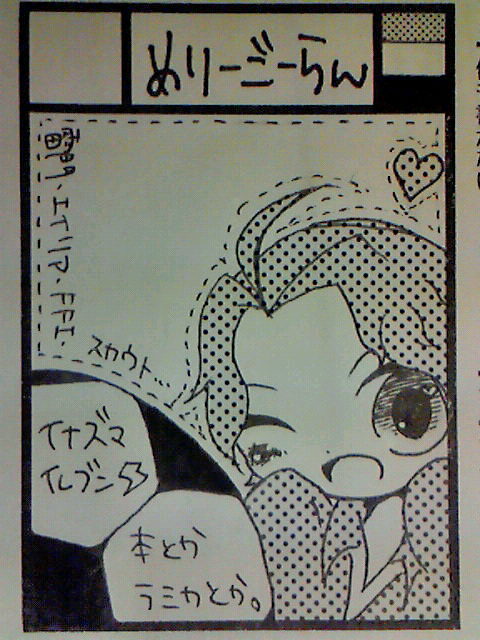 めりーごーらん
雷門・エイリア・FFI・
スカウト…
イナズマ
イレブン53
本とか
ラミカとか。